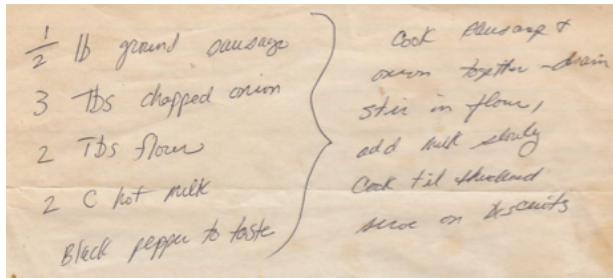 1/2 lb ground sausage
3 Tbs chopped onion
2 Tbs flour
2 C hot milk
Black pepper to taste
Cook sausage &
onion together - drain
stir in flour,
add milk slowly
Cook til thickend
serve on biscuits